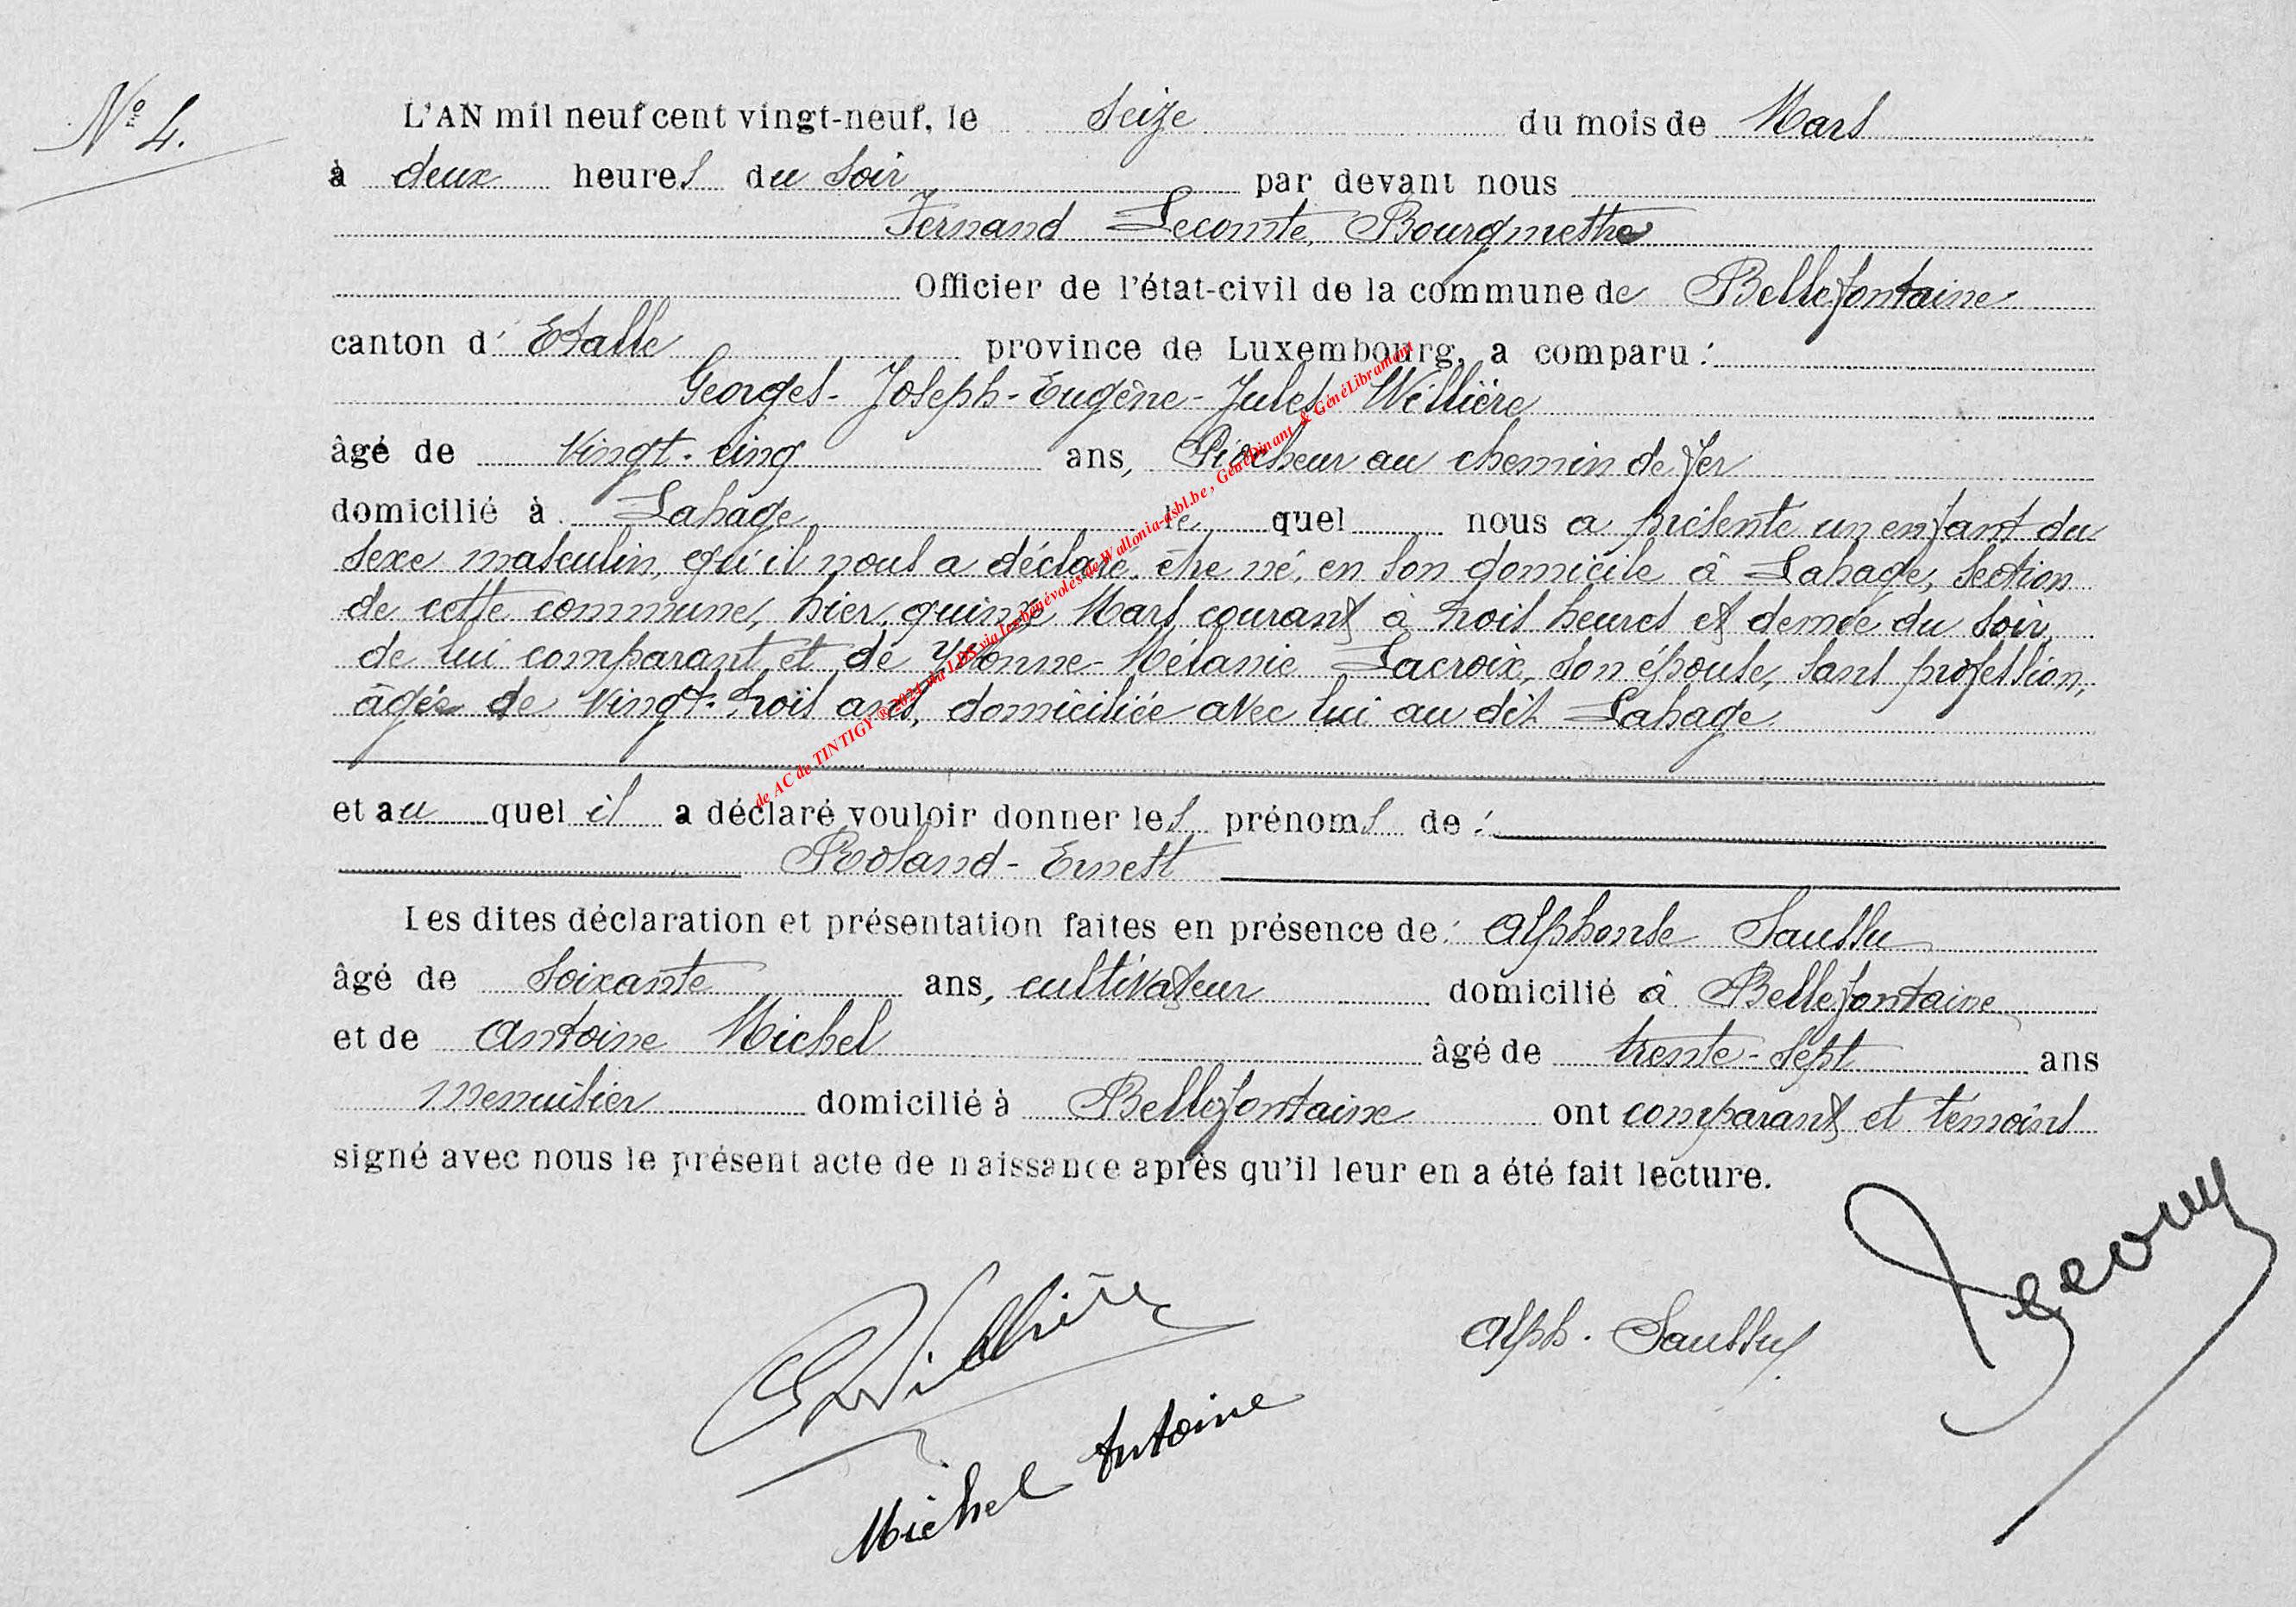 N° 4.
L'AN mil neuf cent vingt-neuf, le seize du mois de Mars
à deux heures du soir par devant nous
Fernand Lecomte, Bourgmestre
Officier de l'état-civil de la commune de Bellefontaine
canton d'Etalle province de Luxembourg, a comparu :
Georges-Joseph-Eugène-Jules Willière
âgé de vingt-cinq ans, Piocheur au chemin de fer
domicilié à Lahage lequel nous a présenté un enfant du
sexe masculin, qu'il nous a déclaré être né, en son domicile à Lahage, section
de cette commune, hier, quinze Mars courant à trois heures et demie du soir,
de lui comparant et de Yvonne-Mélanie Lacroix, son épouse, sans profession,
âgée de vingt-trois ans, domiciliée avec lui au dit Lahage
et auquel il a déclaré vouloir donner les prénoms de :
Roland-Ernest
Les dites déclaration et présentation faites en présence de : Alphonse Saussu
âgé de soixante ans, cultivateur domicilié à Bellefontaine
et de Antoine Michel âgé de trente-sept ans
menuisier domicilié à Bellefontaine ont comparant et témoins
signé avec nous le présent acte de naissance après qu'il leur en a été fait lecture.
GWillière
Alph. Saussu
Michel Antoine
de AC de TINTIGY ®2024 via LDS via les bénévoles de Wallonia-asbl.be, GénéDinant & GénéLibramont